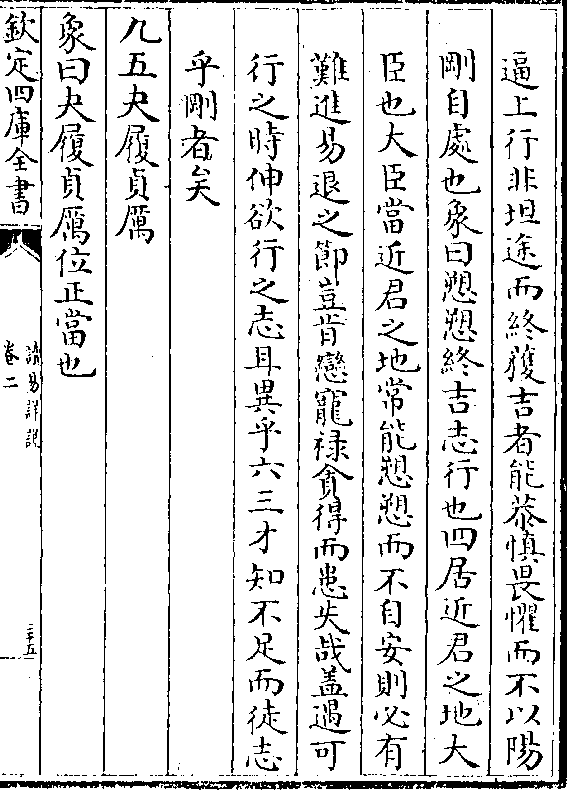 逼上行非坦途而終獲吉者能恭慎畏懼而不以陽
剛自處也象曰愬愬終吉志行也四居近君之地大
臣也大臣當近君之地常能愬愬而不自安則必有
難進易退之節豈肯戀寵祿貪得而患失哉盖遇可
行之時伸欲行之志耳異乎六三才知不足而徒志
乎剛者矣
九五夬履貞厲
象曰夬履貞厲位正當也
欽定四庫全書
讀易詳說
卷二
三十五